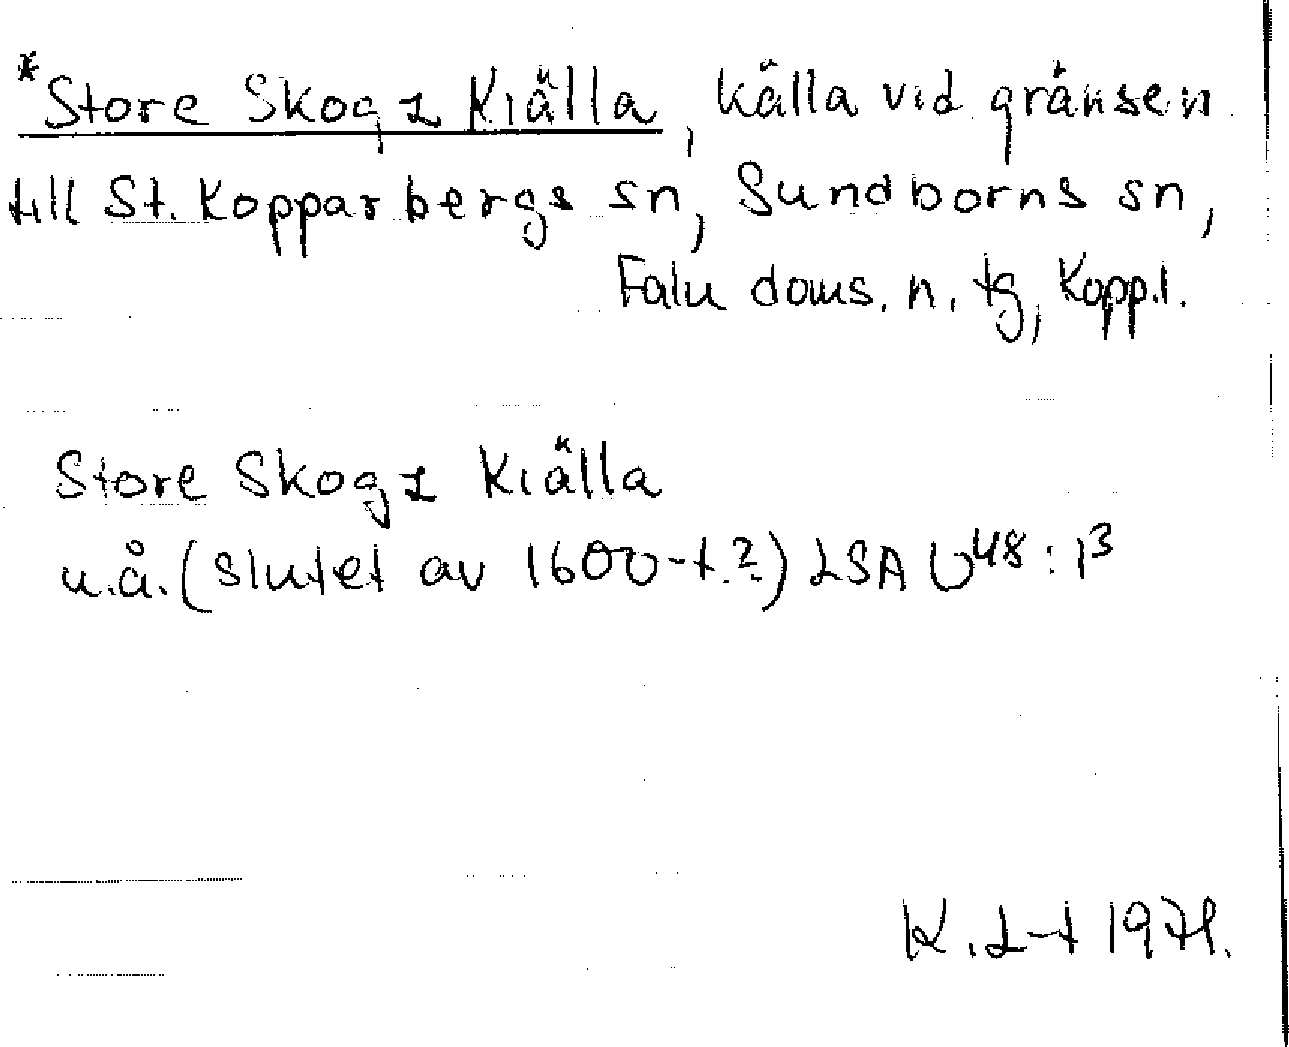 *Store Skogz Kiälla, källa vid gränsen
till St. Kopparbergs sn, Sundborns sn,
Falu doms. n. tg, Kopp.l.
Store Skogz Kiälla
u.å. (slutet av 1600-t.?) LSA U48:1³
K. L-t 1971.